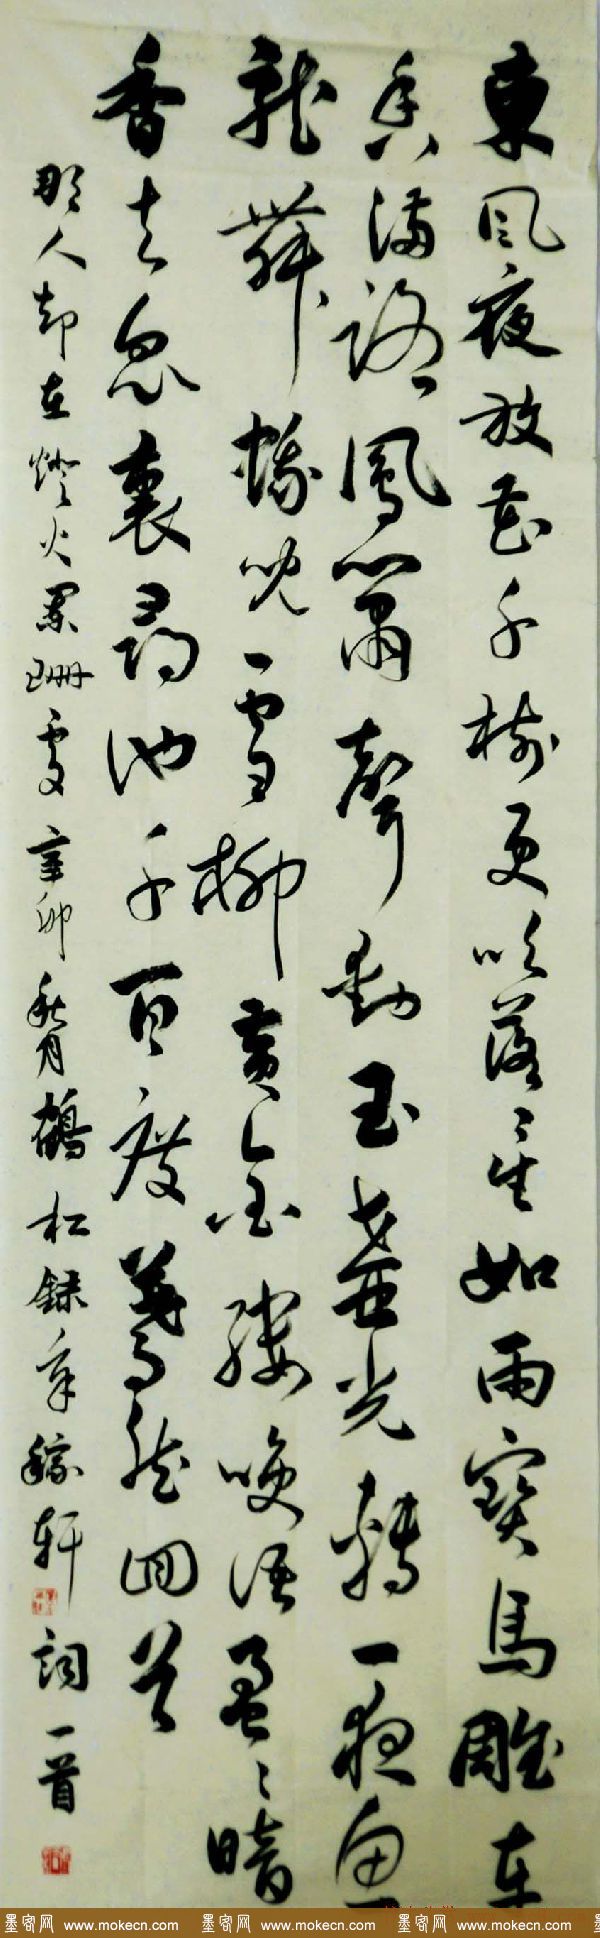 東風夜放花千樹更吹落星如雨寶馬雕車
香滿路鳳簫聲動玉壺光轉一夜魚
龍舞蛾兒雪柳黃金縷咲語盈〻暗
香去眾裏尋他千百度驀然回首
那人却在燈火闌珊處辛卯秋月鶴松錄辛稼軒詞一首
墨客网 www.mokecn.com 墨客网 www.mokecn.com 墨客网 www.mokecn.com